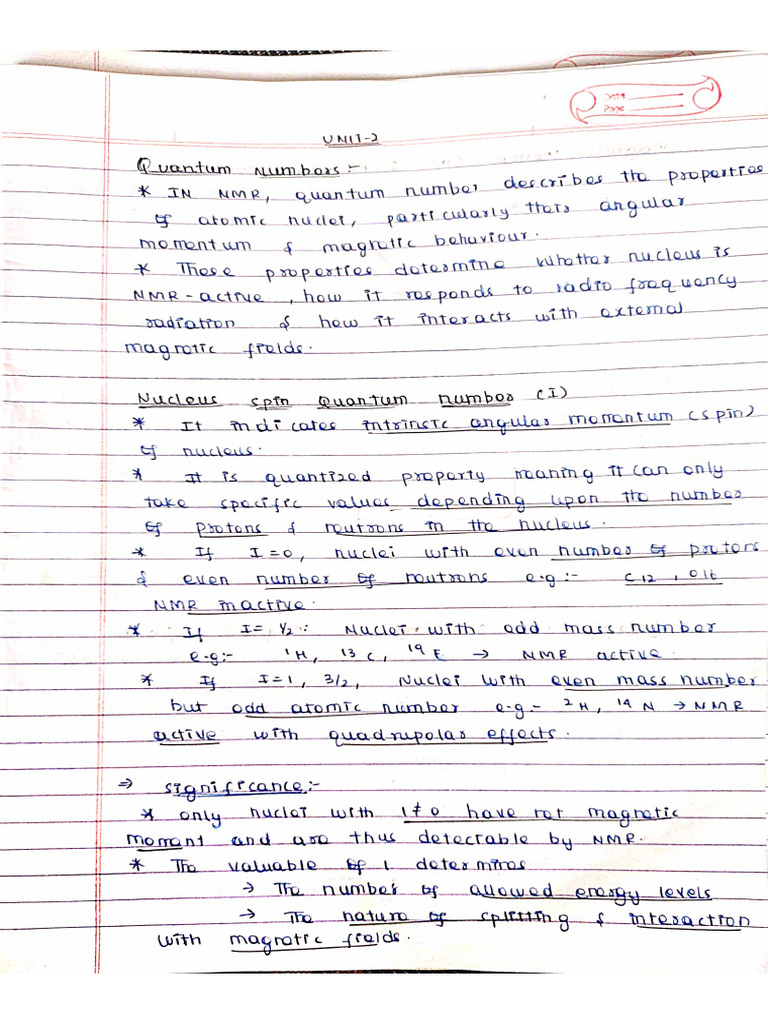 Date
Page
UNIT-2
Quantum Numbers :-
* IN NMR, quantum number describes the properties
of atomic nuclei, particularly their angular
momentum & magnetic behaviour.
* These properties determine whether nucleus is
NMR-active, how it responds to radio frequency
radiation & how it interacts with external
magnetic fields.
Nucleus spin Quantum number (I)
* It indicates intrinsic angular momentum (spin)
of nucleus.
* It is quantized property meaning it can only
take specific values depending upon the number
of protons & neutrons in the nucleus.
* If I=0, nuclei with even number of protons
& even number of neutrons e.g:- C12, O16
NMR inactive.
* If I= 1/2 : Nuclei with odd mass number
e.g:- ¹H, ¹³C, ¹⁹F → NMR active.
* If I=1, 3/2, Nuclei with even mass number
but odd atomic number e.g- ²H, ¹⁴N → NMR
active with quadrupolar effects.
⇒ significance:-
* only nuclei with I≠0 have net magnetic
moment and are thus detectable by NMR.
* The valuable of I determines
→ The number of allowed energy levels
→ The nature of splitting & interaction
with magnetic fields.